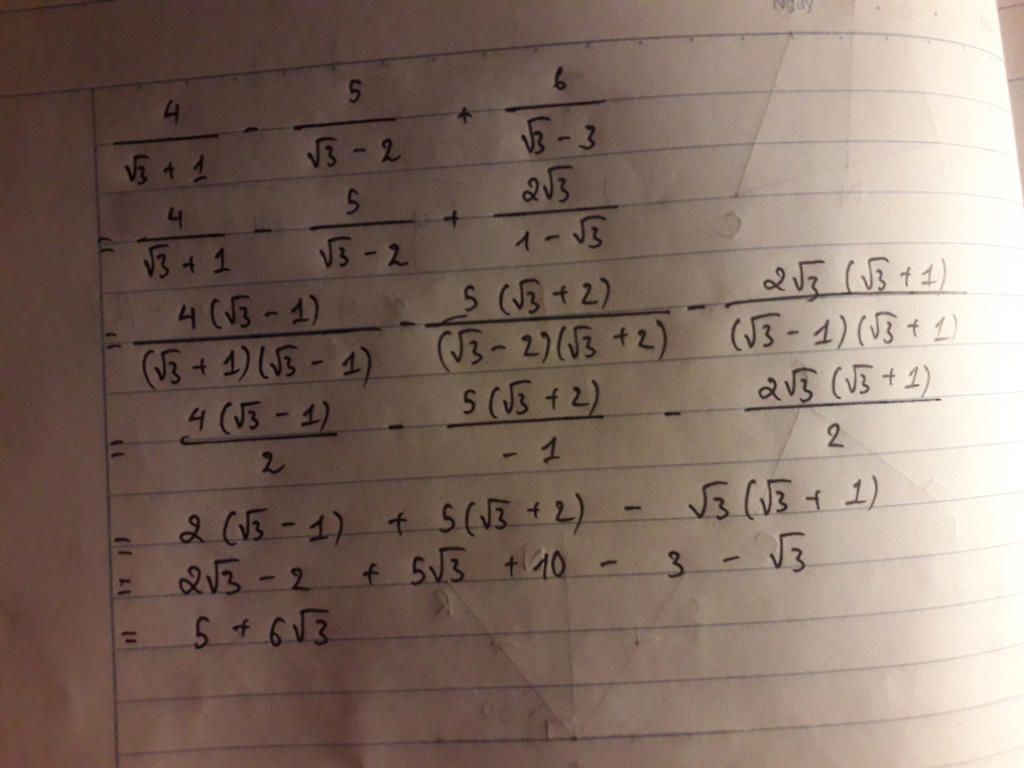 Ngày
4/(√3 + 1) - 5/(√3 - 2) + 6/(√3 - 3)
= 4/(√3 + 1) - 5/(√3 - 2) + 2√3/(1 - √3)
= 4(√3 - 1)/((√3 + 1)(√3 - 1)) - 5(√3 + 2)/((√3 - 2)(√3 + 2)) - 2√3(√3 + 1)/((√3 - 1)(√3 + 1))
= 4(√3 - 1)/2 - 5(√3 + 2)/-1 - 2√3(√3 + 1)/2
= 2(√3 - 1) + 5(√3 + 2) - √3(√3 + 1)
= 2√3 - 2 + 5√3 + 10 - 3 - √3
= 5 + 6√3